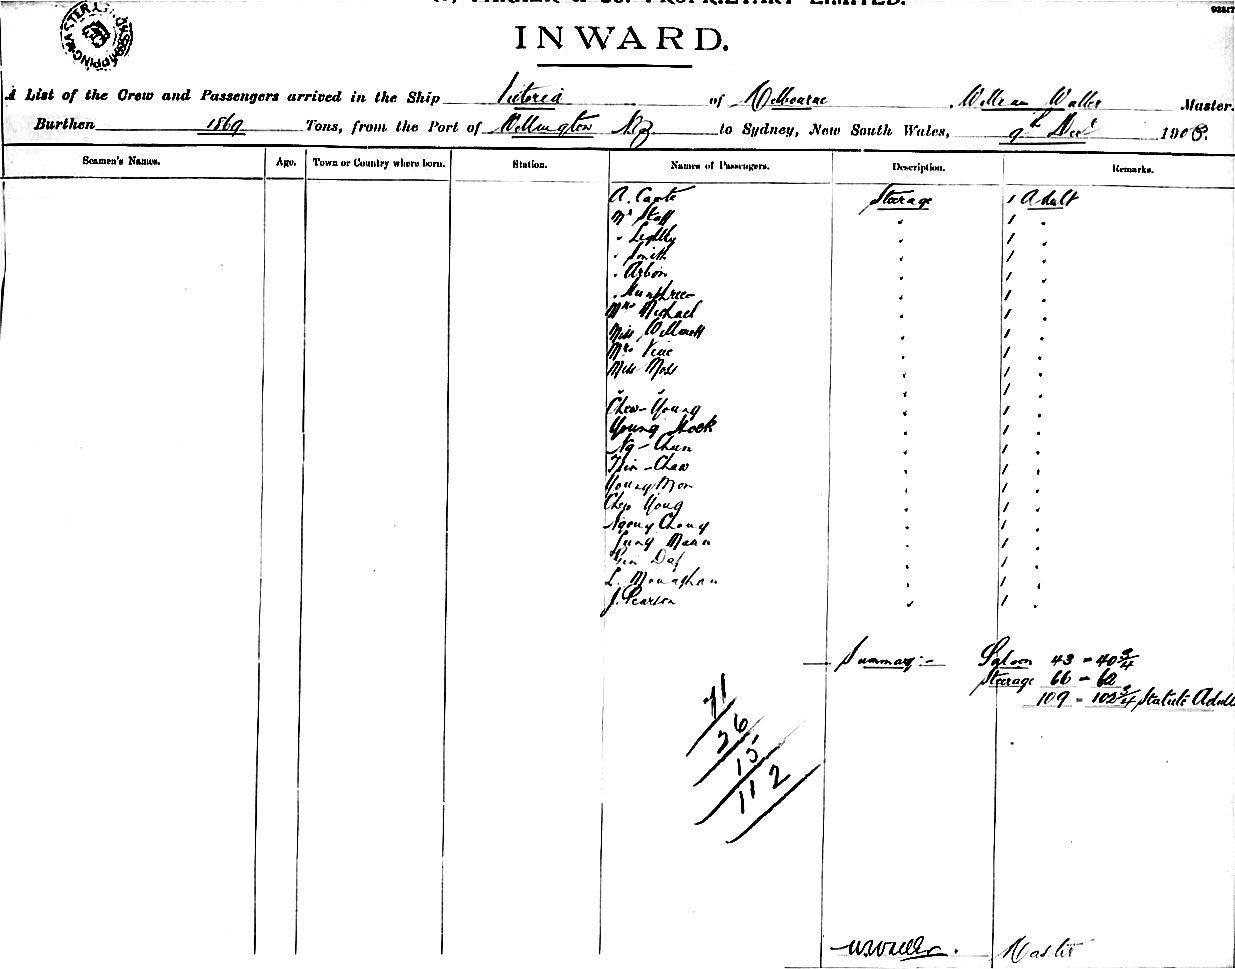 & Co. PROPRIETARY LIMITED.
INWARD.
A List of the Crew and Passengers arrived in the Ship Victoria of Melbourne, William Waller Master.
Burthen 1869 Tons, from the Port of Wellington NZ to Sydney, New South Wales, 9th Decr 1905.
Seamen's Names. Age. Town or Country where born. Station. Names of Passengers. Description. Remarks.
A. Steerage 1 Adult
Mr " 1 "
" " 1 "
" Smith " 1 "
" Arbon " 1 "
" Humphree " 1 "
Mrs Michael " 1 "
Miss " 1 "
Mrs " 1 "
Miss Moss " 1 "
" " " 1 "
Chew-Young " 1 "
Young Hock " 1 "
Ng-Chun " 1 "
-Chaw " 1 "
Young Mon " 1 "
Chew Yong " 1 "
Ngong Chong " 1 "
Mann " 1 "
" 1 "
L. Monaghan " 1 "
J. Pearson " 1 "
Summary:- Saloon 43 = 40 3/4
Steerage 66 = 62
109 = 102 3/4 Statute Adul
71
26
15
112
W Waller. Master